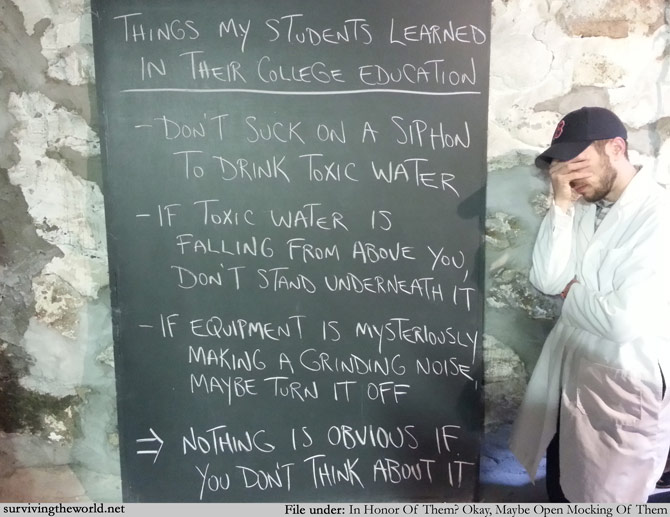 THINGS MY STUDENTS LEARNED
IN THEIR COLLEGE EDUCATION
- DON'T SUCK ON A SIPHON
TO DRINK TOXIC WATER
- IF TOXIC WATER IS
FALLING FROM ABOVE YOU,
DON'T STAND UNDERNEATH IT
- IF EQUIPMENT IS MYSTERIOUSLY
MAKING A GRINDING NOISE,
MAYBE TURN IT OFF
⇒ NOTHING IS OBVIOUS IF
YOU DON'T THINK ABOUT IT
B
survivingtheworld.net
File under: In Honor Of Them? Okay, Maybe Open Mocking Of Them